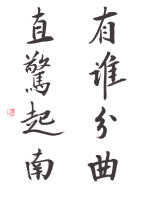 有谁分曲
直驚起南